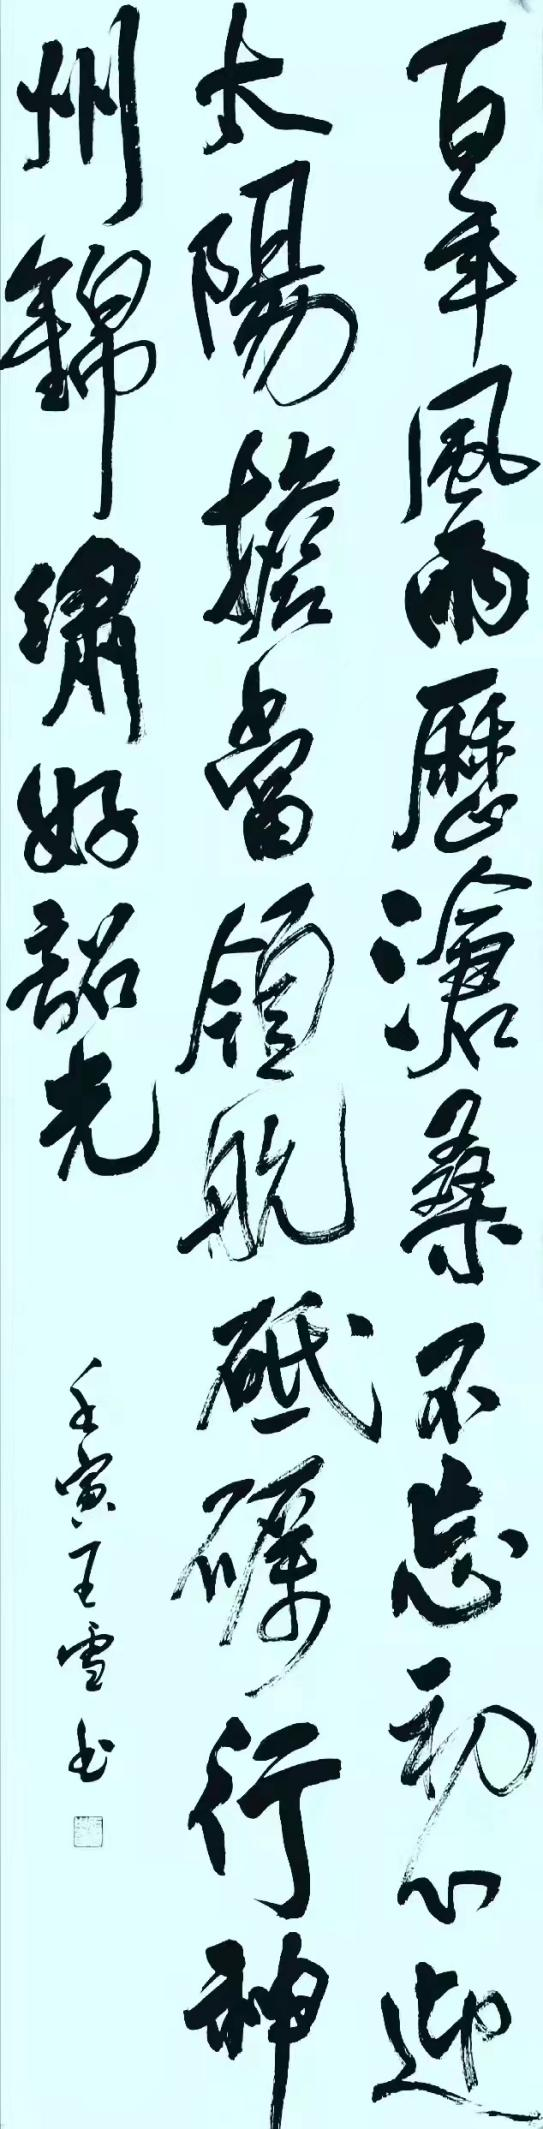 百年風雨歷滄桑不忘初心迎
太陽擔當領航砥礪行神
州錦繡好韶光
壬寅王雪书